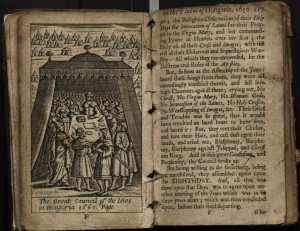 The Great Council of the Iews
in Hungaria 1650. Page
in the Plaines of Hungaria, 1650 117
the Religious Observation of their Holy
Days the Invocation of Saints for their Pray-
to the Virgin Mary, and her command-
ing Power in Heaven over her Son; their
Holy use of their Cross and Images, with the
rest of their Idolatrous and Superstitious Wor-
ship: All which they recommended, for the
Doctrines and Rules of the Apostles.
But, so soon as the Assembly of the Jews
heard these things from them, they were
exceedingly troubled thereat, and fell into
high Clamours against them; crying out, No
Christ, No Virgin Mary, No Woman Gods,
No Intercession of the Saints, No Holy Crosses,
No Worshipping of Images, &c. Their Grief
and Trouble was so great, that it would
have troubled an hard heart to have seen,
and heard it: For, they rent their Cloaths,
and tore their Hair, and cast dust upon their
heads, and cried out, Blasphemy, Blasphe-
my, Blasphemy against Jehovah, and Christ
our King. And in this great Confusion, and
Perplexity, the Council broke up.
But being willing to do something, being
they assembled again upon
the EIGHTH DAY. And, all that was
then done upon that Day, was to agree upon
another meeting of the Jews which was to be
three years after; which was then concluded
upon, before their final departing.